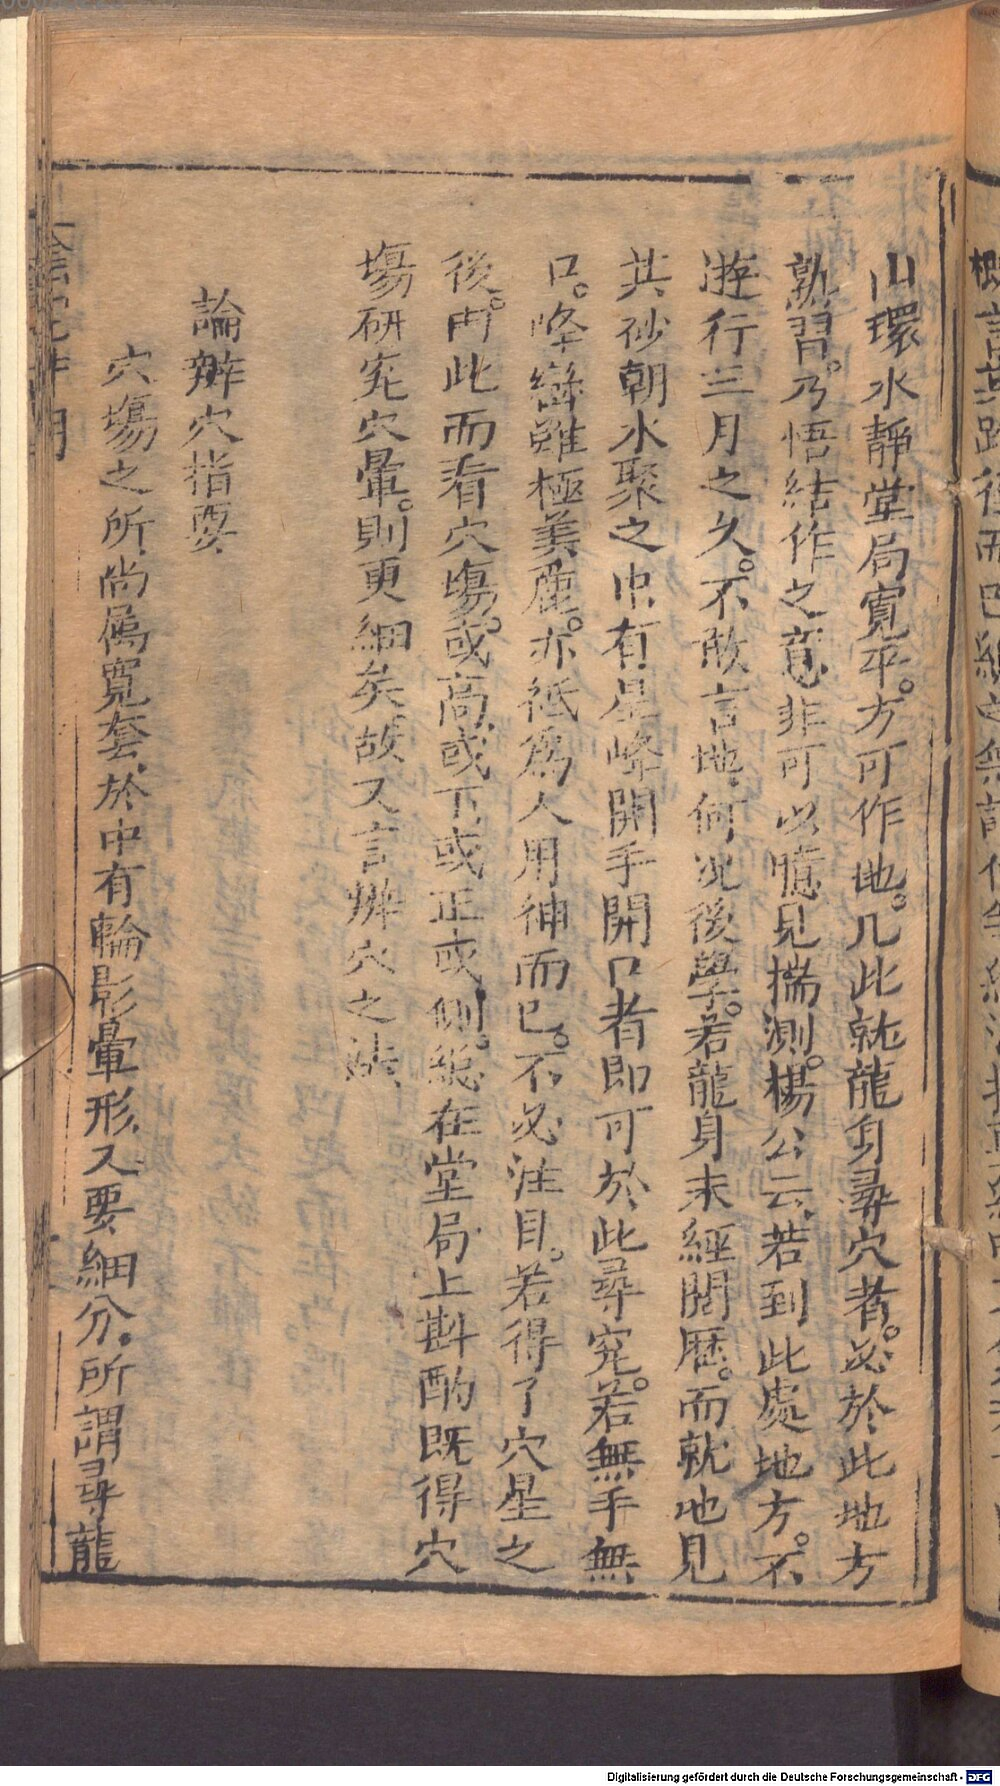 山環水靜堂局寬平。方可作地。凡此就龍身尋穴者。必於此地方
熟習。乃悟結作之意、非可以臆見揣測。楊公云、若到此處地方。不
遊行三月之久。不敢言地、何况後學。若龍身未經閱歷。而就地見
其砂朝水聚之中、有星峰開手開口者、即可於此尋究。若無手無
口。峰巒雖極美麗。亦祗爲人用神而已。不必注目。若得了穴星之
後。由此而看穴塲。或高、或下、或正或側。總在堂局上斟酌既得穴
塲研究穴暈。則更細矣、故又言辨穴之法、
論辨穴指要
穴塲之所、尚属寬套、於中有輪影暈形、又要細分。所謂尋龍
Digitalisierung gefördert durch die Deutsche Forschungsgemeinschaft - DFG